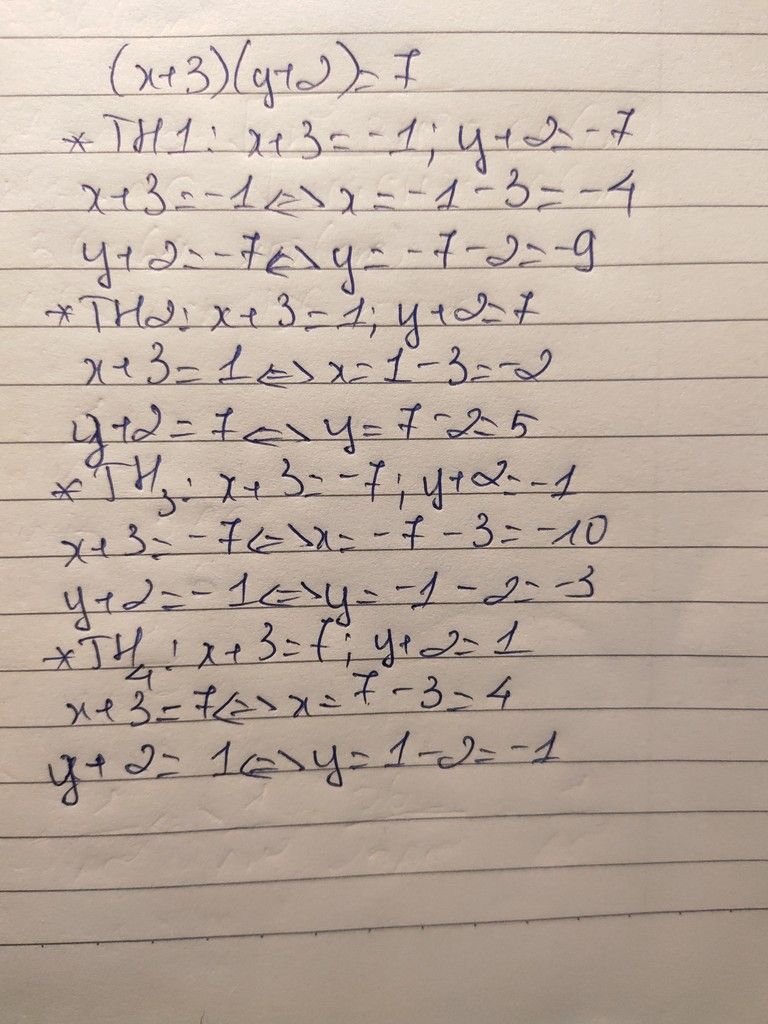 (x+3)(y+2)=7
* TH1: x+3=-1; y+2=-7
x+3=-1<=>x=-1-3=-4
y+2=-7<=>y=-7-2=-9
* TH2: x+3=1; y+2=7
x+3=1<=>x=1-3=-2
y+2=7<=>y=7-2=5
* TH3: x+3=-7; y+2=-1
x+3=-7<=>x=-7-3=-10
y+2=-1<=>y=-1-2=-3
* TH4: x+3=7; y+2=1
x+3=7<=>x=7-3=4
y+2=1<=>y=1-2=-1